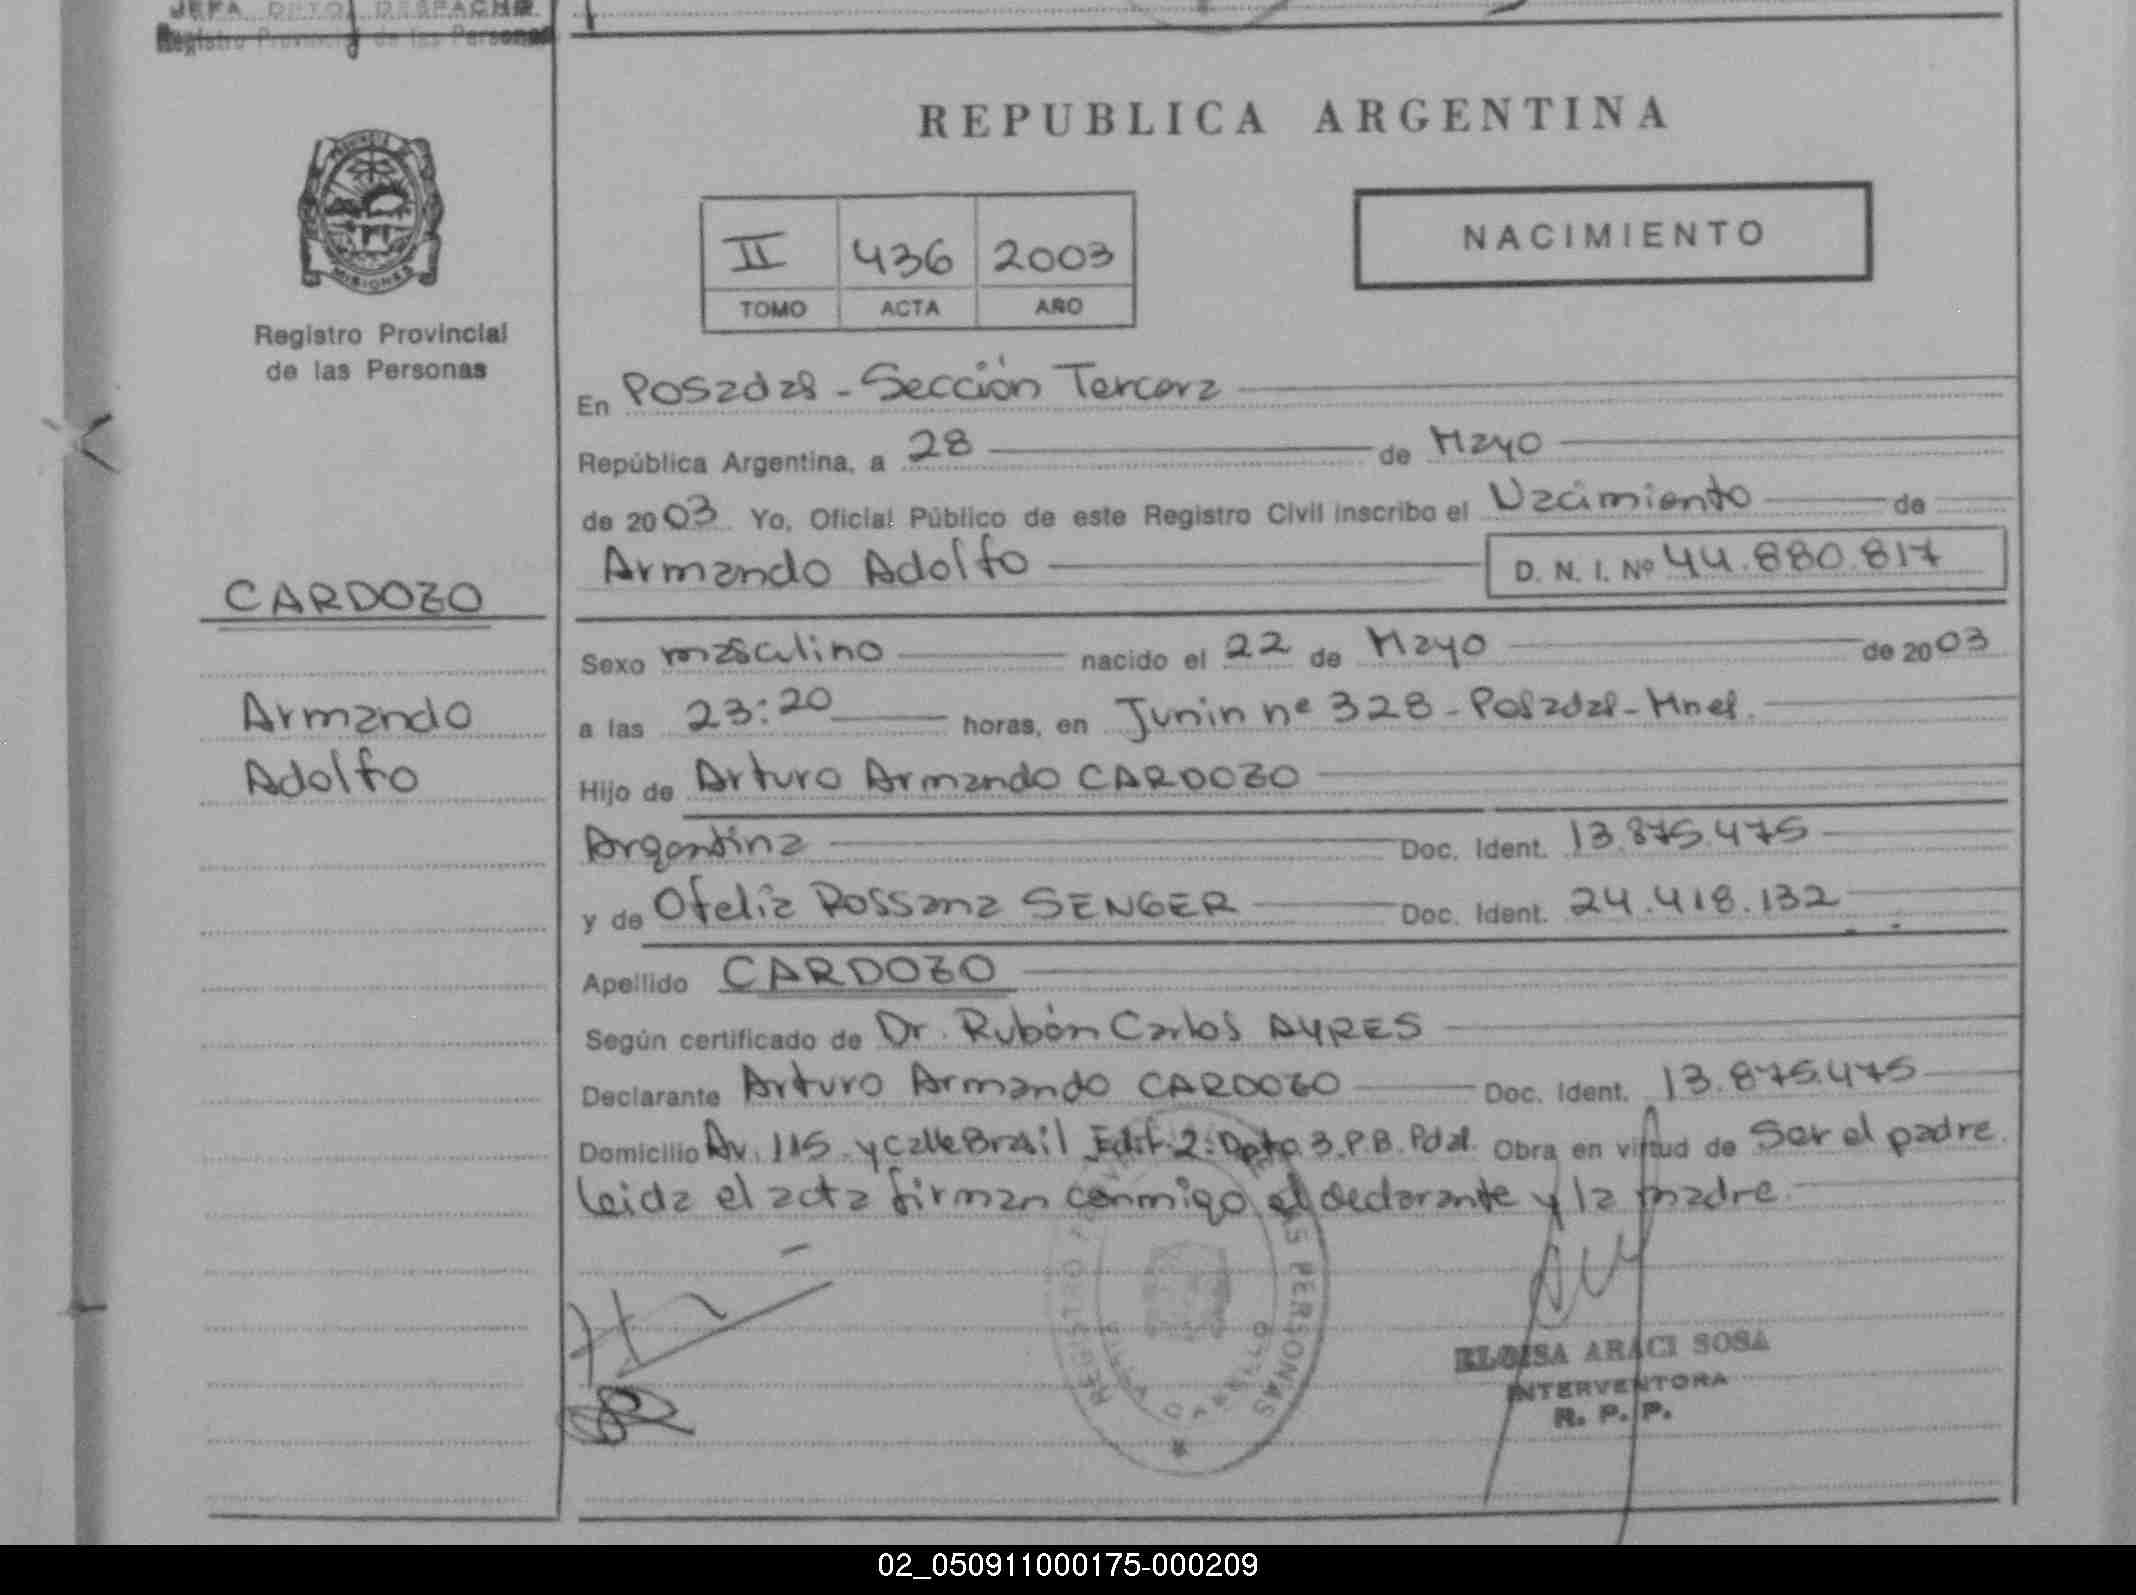 JEFA DPTO. DESPACHO
Registro Provincial de las Personas
PROVINCIA DE
MISIONES
Registro Provincial
de las Personas
CARDOZO
Armando
Adolfo
REPUBLICA ARGENTINA
II 436 2003
TOMO ACTA AÑO
NACIMIENTO
En Posadas - Sección Tercera
República Argentina, a 28 de Mayo
de 2003 Yo, Oficial Público de este Registro Civil inscribo el Nacimiento de
Armando Adolfo D. N. I. Nº 44.880.817
Sexo masculino nacido el 22 de Mayo de 2003
a las 23:20 horas, en Junin nº 328 - Posadas - Mnes.
Hijo de Arturo Armando CARDOZO
Argentina Doc. Ident. 13.875.475
y de Ofelia Rossana SENGER Doc. Ident. 24.418.132
Apellido CARDOZO
Según certificado de Dr. Rubén Carlos AYRES
Declarante Arturo Armando CARDOZO Doc. Ident. 13.875.475
Domicilio Av. 115 y calle Brasil Edif. 2. Dpto 3. P.B. Pdas. Obra en virtud de Ser el padre.
Leida el acta firman conmigo el declarante y la madre
REGISTRO PERSONAS
ELOISA ARACI SOSA
INTERVENTORA
R. P. P.
02_050911000175-000209